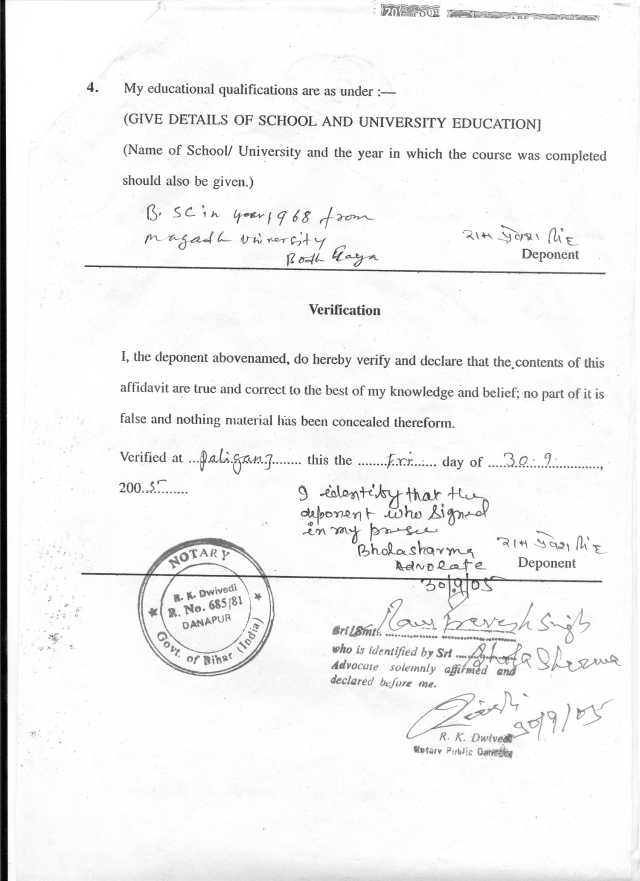 4. My educational qualifications are as under :—
(GIVE DETAILS OF SCHOOL AND UNIVERSITY EDUCATION]
(Name of School/ University and the year in which the course was completed
should also be given.)
B. SC in year 1968 from
magadh University
Bodh Gaya
राम प्रवेश सिंह
Deponent
Verification
I, the deponent abovenamed, do hereby verify and declare that the contents of this
affidavit are true and correct to the best of my knowledge and belief; no part of it is
false and nothing material has been concealed thereform.
Verified at ...paliganj........ this the ........Fri...... day of ....30.9............,
200..5.........
I identify that the
deponent who signed
in my
Bhola sharma
Advocate
30/9/05
राम प्रवेश सिंह
Deponent
NOTARY
R. K. Dwivedi
R. No. 685/81
DANAPUR
Govt. of Bihar (India)
Sri/Smt. Ram Pravesh Singh
who is identified by Sri .... Bhola Sharma
Advocate solemnly affirmed and
declared before me.
30/9/05
R. K. Dwivedi
Notary Public Danapur